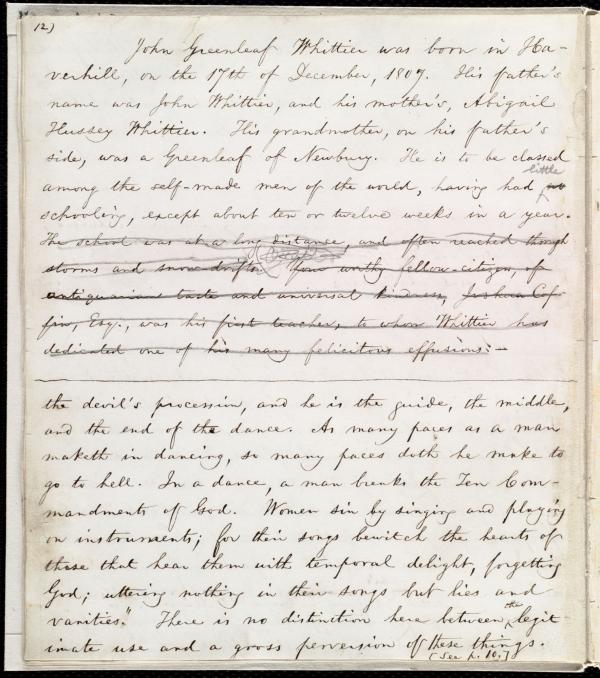 12)
John Greenleaf Whittier was born in Ha-
verhill, on the 17th of December, 1807. His father's
name was John Whittier, and his mother's, Abigail
Hussey Whittier. His grandmother, on his father's
side, was a Greenleaf of Newbury. He is to be classed
little
among the self-made men of the world, having had no
schooling, except about ten or twelve weeks in a year.
The school was at a long distance, and often reached through
storms and snow-drifts. Your worthy fellow-citizen, of
antiquarian taste and universal kindness, Joshua Cof-
fin, Esq., was his first teacher, to whom Whittier has
dedicated one of his many felicitous effusions.—
the devil's procession, and he is the guide, the middle,
and the end of the dance. As many paces as a man
maketh in dancing, so many paces doth he make to
go to hell. In a dance, a man breaks the Ten Com-
mandments of God. Women sin by singing and playing
on instruments; for their songs bewitch the hearts of
those that hear them with temporal delight, forgetting
God; uttering nothing in their songs but lies and
vanities." There is no distinction here between the legit-
imate use and a gross perversion of these things.
(See p. 10.)